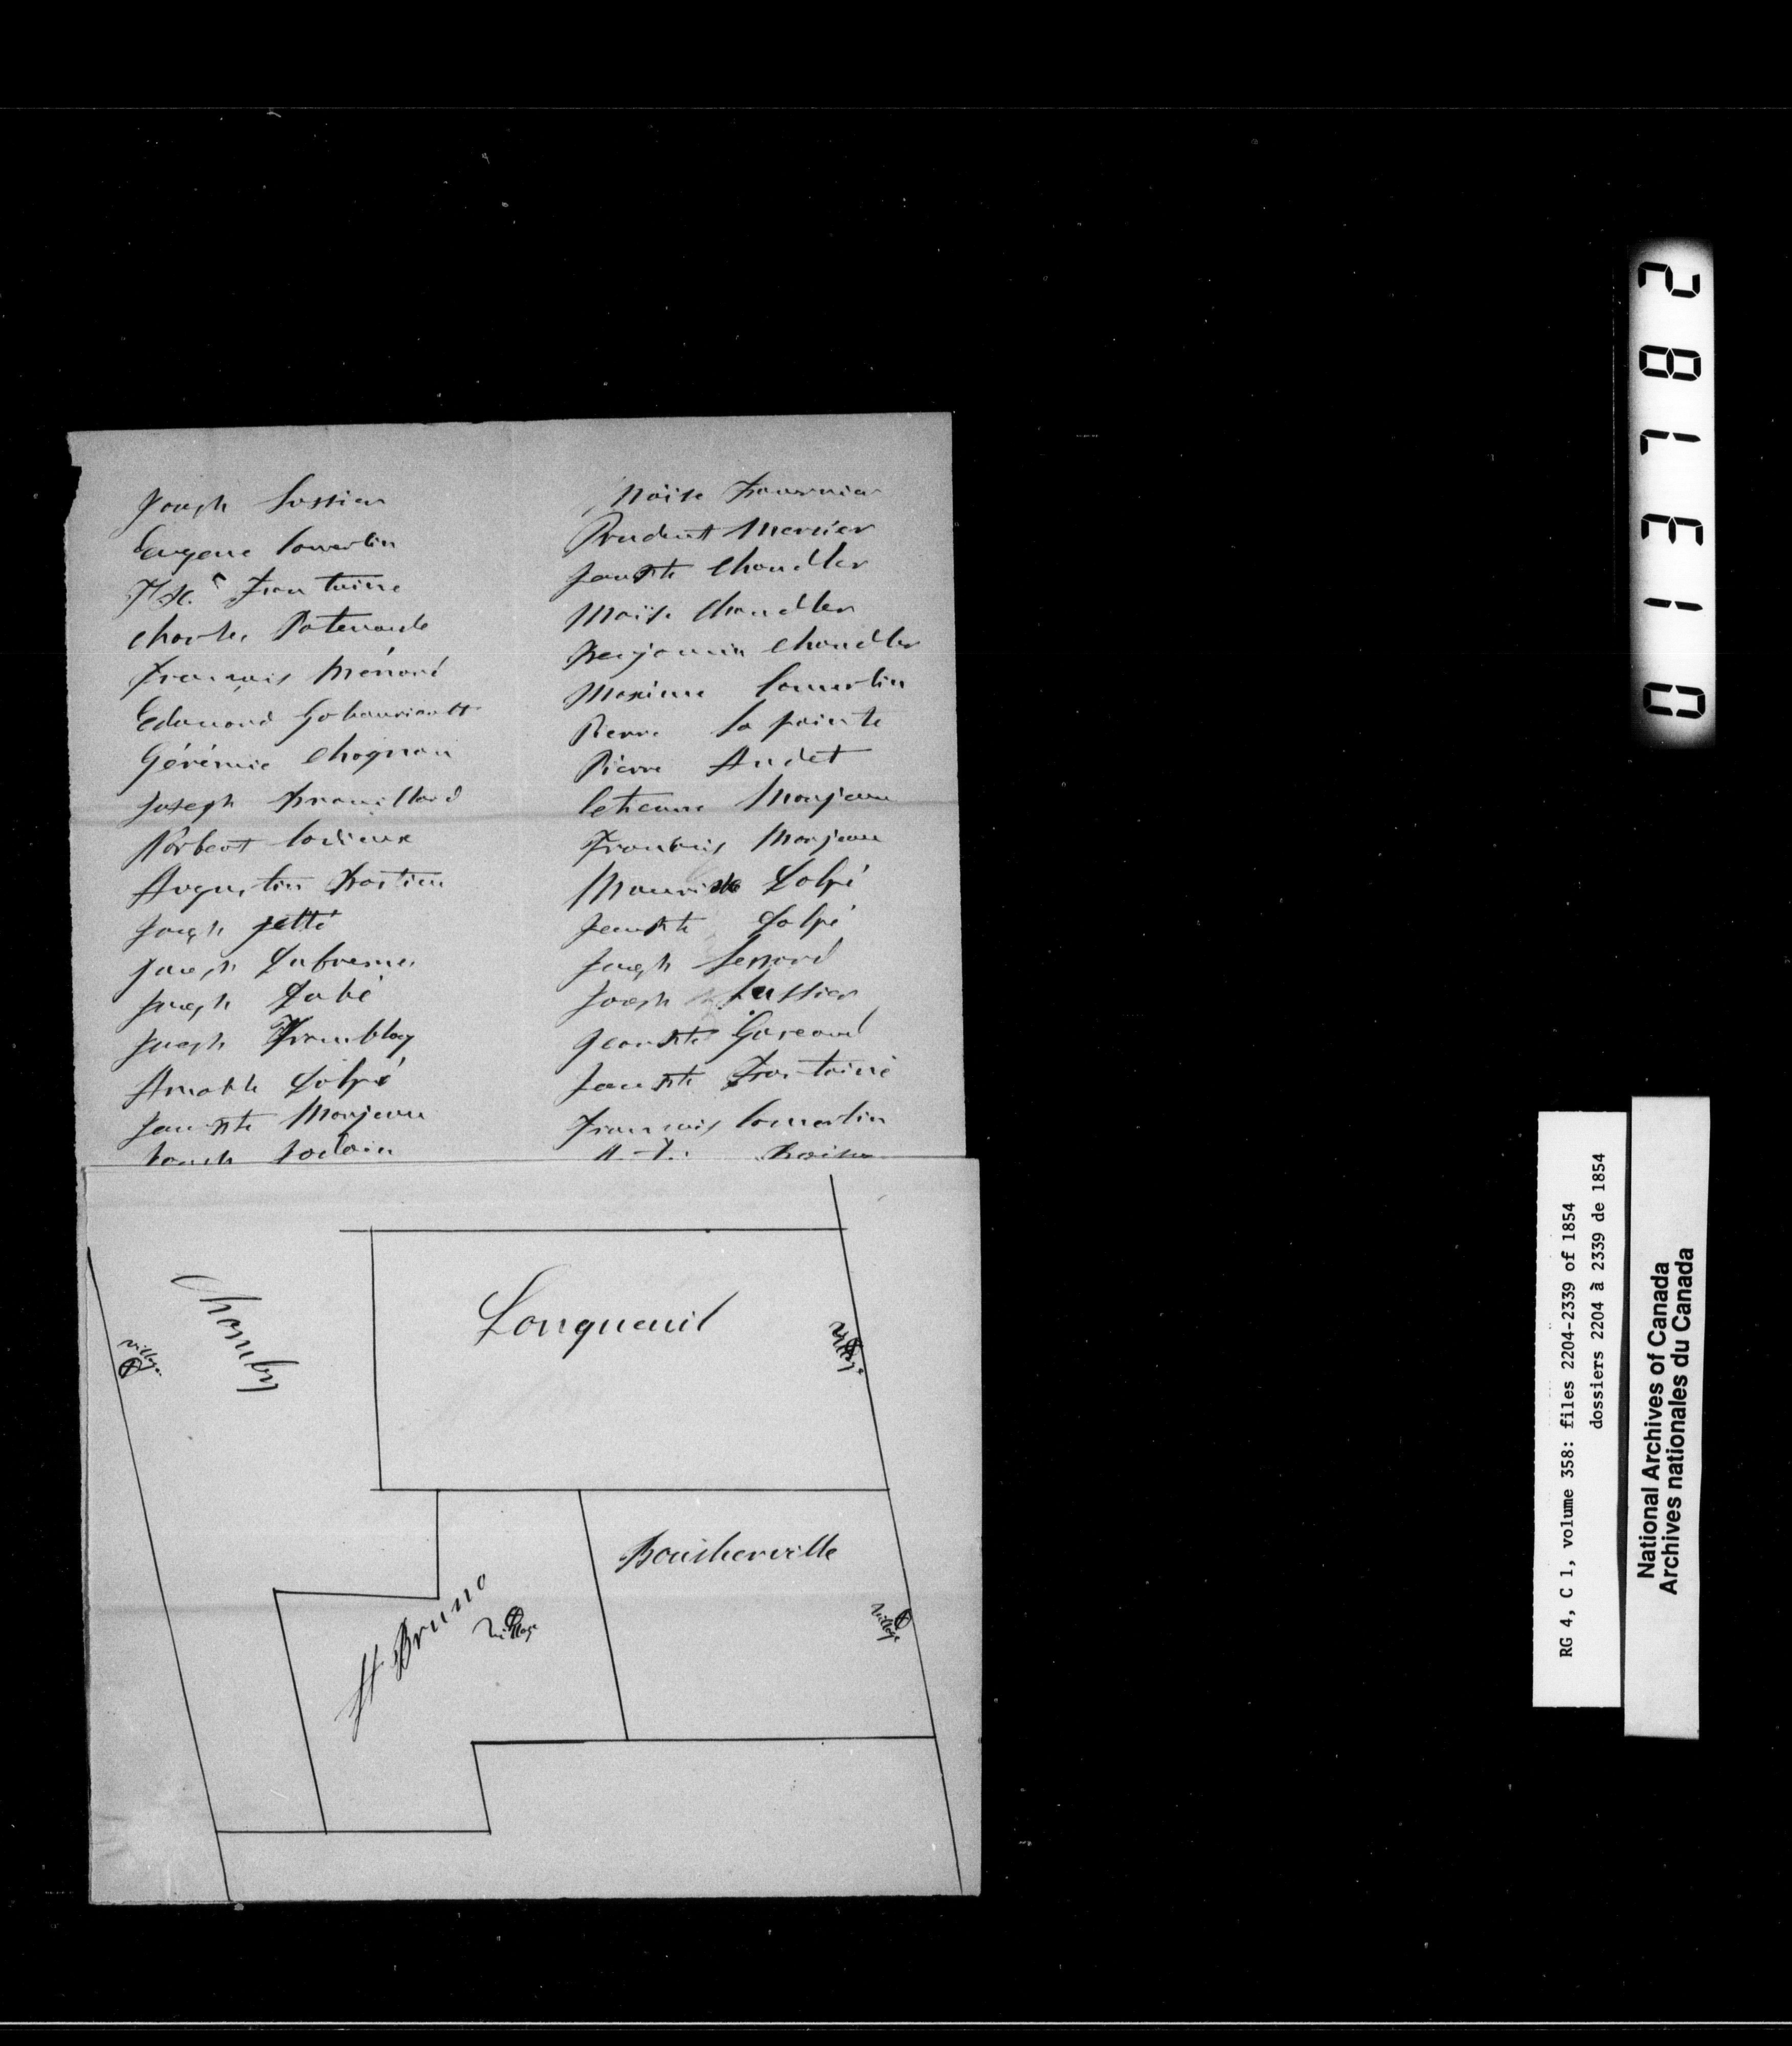 Joseph Lussier
Eugene Lamerlin
Fontaine
Charles Patenaude
François Ménard
Edmond Gobauriault
Gérémie Chagnan
Joseph Brouillard
Norbert Ladieux
Augustin Bastien
Joseph Jetté
Joseph Dufresne
Joseph Dubé
Joseph Tremblay
Amable Dalpé
Jean Bte Monjeau
Joseph
Moïse Fournier
Prudent Mercier
Jean Bte Chandler
Moïse Chandler
Benjamin Chandler
Maxime Lamerlin
Pierre La pointe
Pierre Audet
Etienne Monjeau
François Monjeau
Dalpé
Jean Bte Dalpé
Joseph
Joseph Lussier
Jean Bte Gareau
Jean Bte Fontaine
François Lamerlin
Chambly
village
Longueuil
Village
Boucherville
Village
St Bruno
Village
013782
RG 4, C 1, volume 358: files 2204-2339 of 1854
dossiers 2204 à 2339 de 1854
National Archives of Canada
Archives nationales du Canada